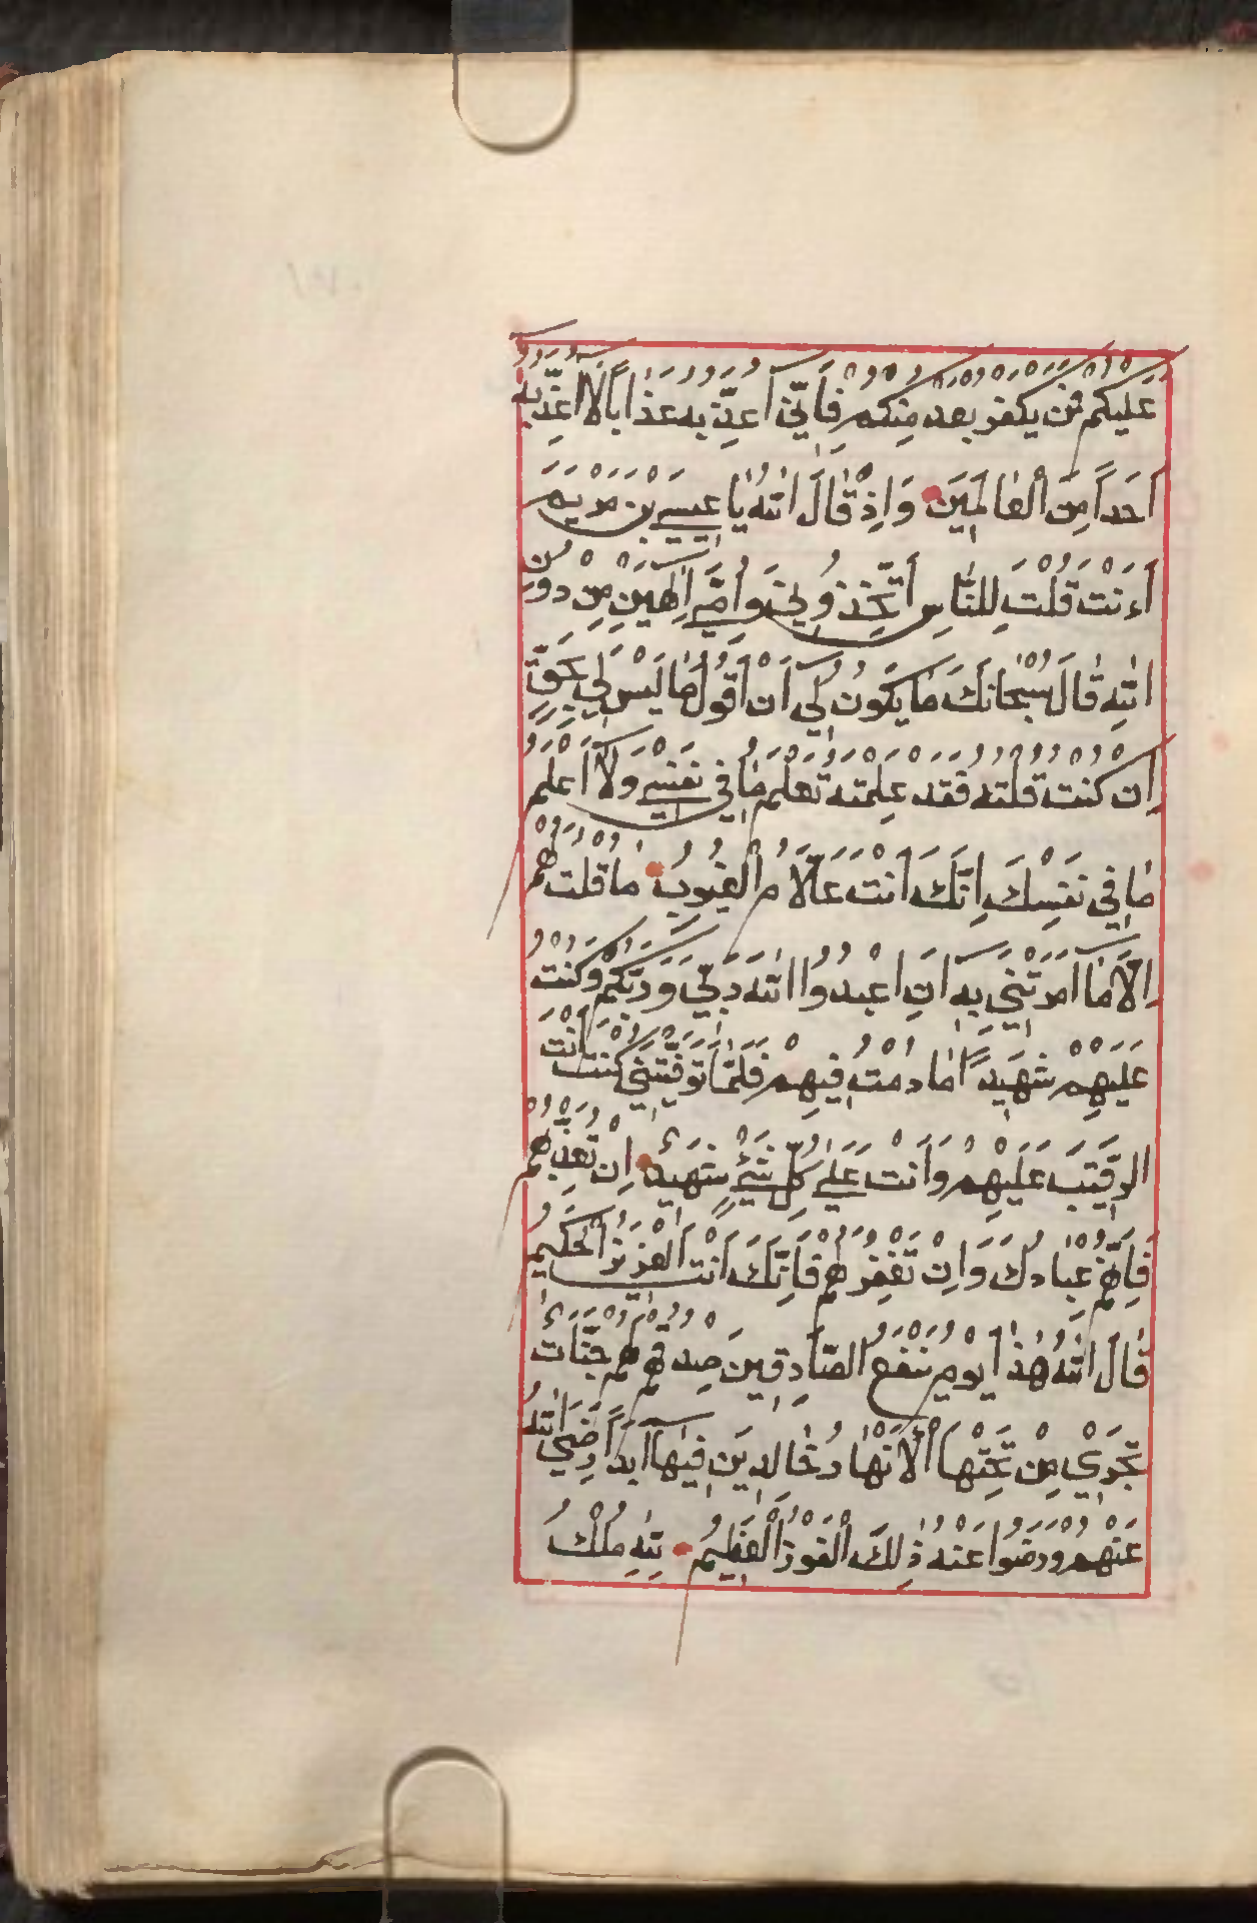 عَلَيْكُمْ فَمَنْ يَكْفُرْ بَعْدُ مِنْكُمْ فَإِنِّي أُعَذِّبُهُ عَذَابًا لَا أُعَذِّبُهُ
أَحَداً مِنَ الْعَالَمِينَ وَإِذْ قَالَ اللهُ يَا عِيسَى بْنَ مَرْيَمَ
أَءَنْتَ قُلْتَ لِلنَّاسِ اتَّخِذُونِي وَأُمِّيَ إِلٰهَيْنِ مِنْ دُونِ
اللهِ قَالَ سُبْحَانَكَ مَا يَكُونُ لِي أَنْ أَقُولَ مَا لَيْسَ لِي بِحَقٍّ
إِنْ كُنْتُ قُلْتُهُ فَقَدْ عَلِمْتَهُ تَعْلَمُ مَا فِي نَفْسِي وَلَا أَعْلَمُ
مَا فِي نَفْسِكَ إِنَّكَ أَنْتَ عَلَّامُ الْغُيُوبِ مَا قُلْتُ لَهُمْ
إِلَّا مَا أَمَرْتَنِي بِهِ أَنِ اعْبُدُوا اللهَ رَبِّي وَرَبَّكُمْ وَكُنْتُ
عَلَيْهِمْ شَهِيداً مَا دُمْتُ فِيهِمْ فَلَمَّا تَوَفَّيْتَنِي كُنْتَ أَنْتَ
الرَّقِيبَ عَلَيْهِمْ وَأَنْتَ عَلَى كُلِّ شَيْءٍ شَهِيدٌ إِنْ تُعَذِّبْهُمْ
فَإِنَّهُمْ عِبَادُكَ وَإِنْ تَغْفِرْ لَهُمْ فَإِنَّكَ أَنْتَ الْعَزِيزُ الْحَكِيمُ
قَالَ اللهُ هٰذَا يَوْمُ يَنْفَعُ الصَّادِقِينَ صِدْقُهُمْ لَهُمْ جَنَّاتٌ
تَجْرِي مِنْ تَحْتِهَا الْأَنْهَارُ خَالِدِينَ فِيهَا أَبَداً رَضِيَ اللهُ
عَنْهُمْ وَرَضُوا عَنْهُ ذٰلِكَ الْفَوْزُ الْعَظِيمُ لِلهِ مُلْكُ